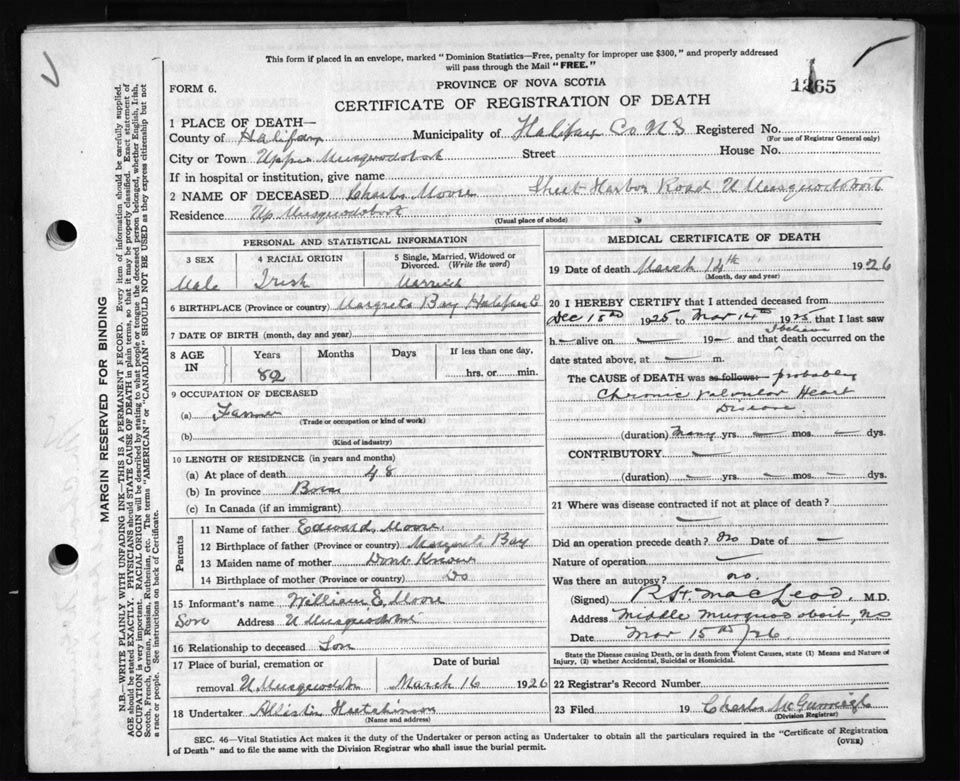 This form if placed in an envelope, marked "Dominion Statistics—Free, penalty for improper use $300," and properly addressed
will pass through the Mail "FREE."
FORM 6.
PROVINCE OF NOVA SCOTIA
CERTIFICATE OF REGISTRATION OF DEATH
1265
1 PLACE OF DEATH—
County of Halifax Municipality of Halifax Co N S Registered No.
(For use of Registrar General only)
City or Town Upper Musquodoboit Street House No.
If in hospital or institution, give name
2 NAME OF DECEASED Charles Moore Sheet Harbor Road U Musquodoboit
Residence Up Musquodoboit
(Usual place of abode)
PERSONAL AND STATISTICAL INFORMATION
3 SEX
Male
4 RACIAL ORIGIN
Irish
5 Single, Married, Widowed or
Divorced. (Write the word)
Married
6 BIRTHPLACE (Province or country) Margrets Bay Halifax
7 DATE OF BIRTH (month, day and year)
8 AGE
IN
Years
82
Months
Days
If less than one day,
hrs. or min.
9 OCCUPATION OF DECEASED
(a) Farmer
(Trade or occupation or kind of work)
(b)
(Kind of industry)
10 LENGTH OF RESIDENCE (in years and months)
(a) At place of death 48
(b) In province Born
(c) In Canada (if an immigrant)
Parents
11 Name of father Edward Moore
12 Birthplace of father (Province or country) Margrets Bay
13 Maiden name of mother Dont Know
14 Birthplace of mother (Province or country) Do
15 Informant's name William E. Moore
Son Address U Musquodoboit
16 Relationship to deceased Son
17 Place of burial, cremation or
removal U. Musquodoboit
Date of burial
March 16 1926
18 Undertaker Allister Hutchinson
(Name and address)
MEDICAL CERTIFICATE OF DEATH
19 Date of death March 14th 1926
(Month, day and year)
20 I HEREBY CERTIFY that I attended deceased from
Dec 15th 1925 to Mar 14th 1925 that I last saw
I believe
h— alive on — 19— and that death occurred on the
date stated above, at — m.
The CAUSE of DEATH was as follows: probably
Chronic valvular Heart
Disease.
(duration) Many yrs. — mos. — dys.
CONTRIBUTORY —
(duration) — yrs. — mos. — dys.
21 Where was disease contracted if not at place of death?
—
Did an operation precede death? No Date of —
Nature of operation —
Was there an autopsy? no.
(Signed) R. H. MacLeod, M.D.
Address Middle Musquodoboit, NS
Date Mar 15th /26
State the Disease causing Death, or in death from Violent Causes, state (1) Means and Nature of
Injury, (2) whether Accidental, Suicidal or Homicidal.
22 Registrar's Record Number
23 Filed 19 Charles
(Division Registrar)
SEC. 46—Vital Statistics Act makes it the duty of the Undertaker or person acting as Undertaker to obtain all the particulars required in the "Certificate of Registration
of Death" and to file the same with the Division Registrar who shall issue the burial permit.
(OVER)
MARGIN RESERVED FOR BINDING
N.B.—WRITE PLAINLY WITH UNFADING INK—THIS IS A PERMANENT RECORD. Every item of information should be carefully supplied.
AGE should be stated EXACTLY. PHYSICIANS should STATE CAUSE OF DEATH in plain terms, so that it may be properly classified. Exact statement of
OCCUPATION is very important. RACIAL ORIGIN will be described by stating to what people or tongue the deceased person belonged, whether English, Irish,
Scotch, French, German, Russian, Ruthenian, etc. The terms "AMERICAN" or "CANADIAN" SHOULD NOT BE USED as they express citizenship but not
a race or people. See instructions on back of Certificate.